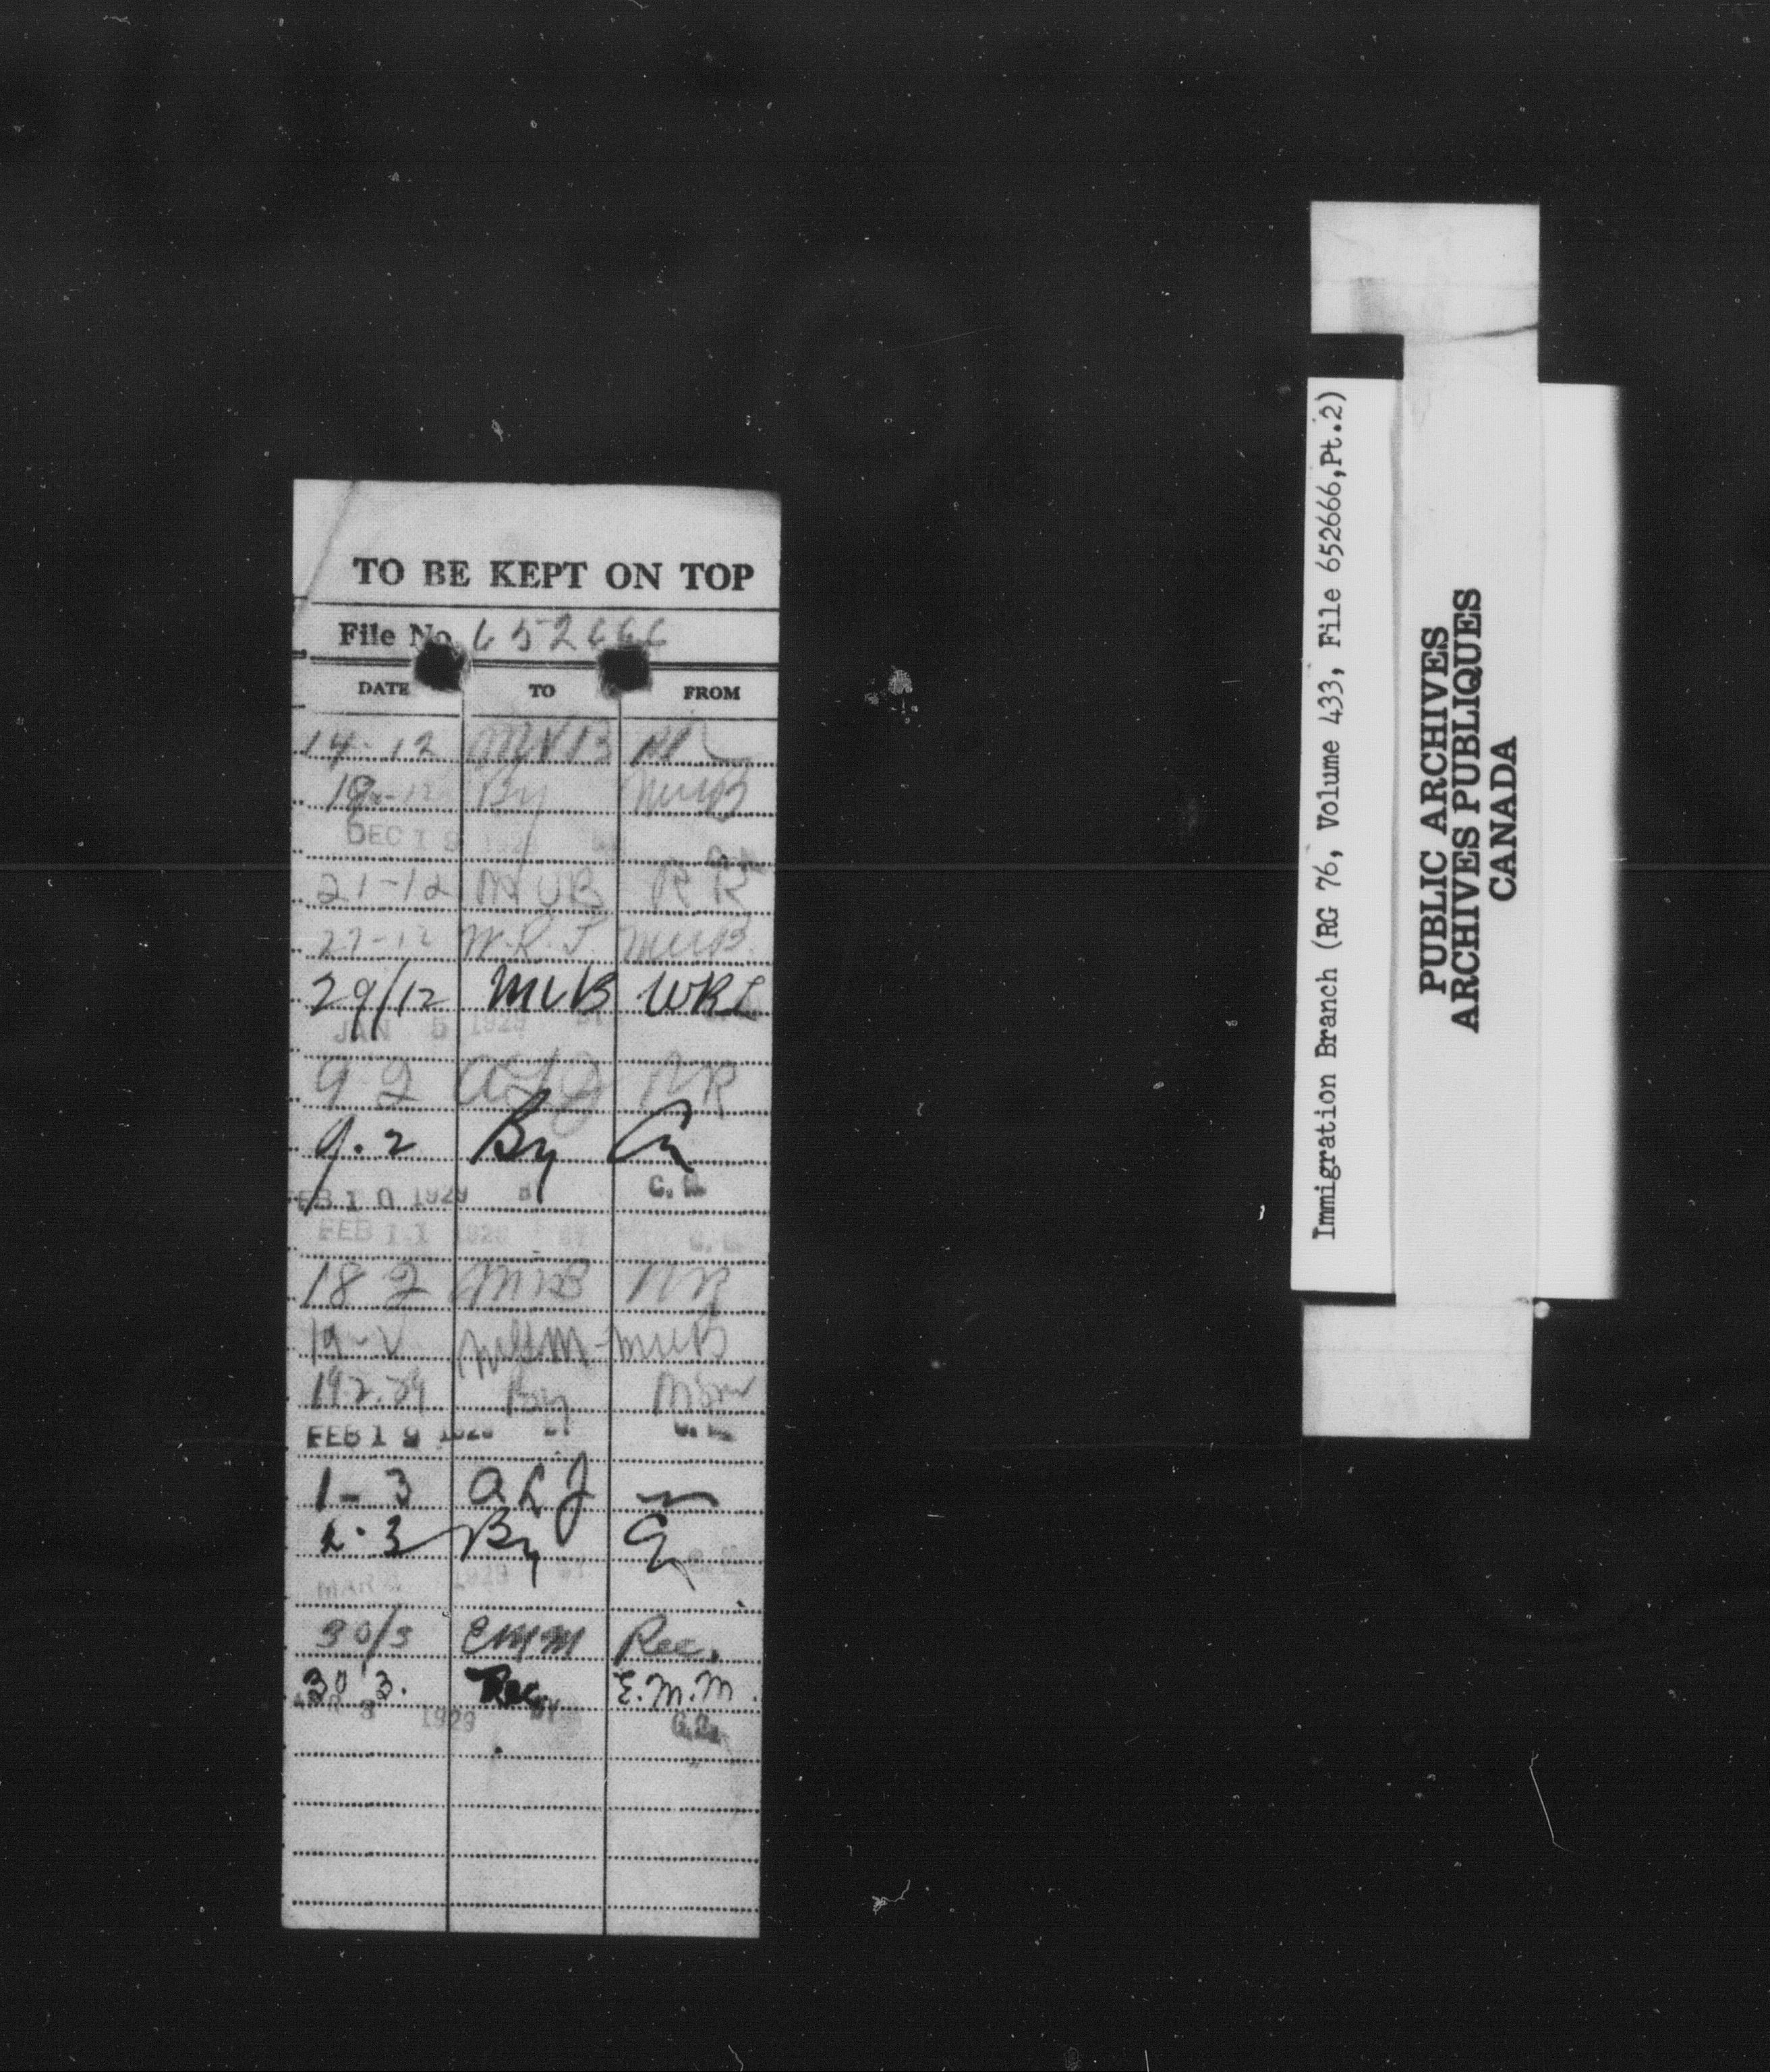 TO BE KEPT ON TOP
File No. 652666
DATE TO FROM
14-12 MVB
18-12 By MVB
DEC 1928
21-12 MVB RR
27-12 W.R.J. MVB
29/12 MVB WRL
JAN 5 1929 BY
9 2 ALJ RR
9.2 By
FEB 10 1929 BY C.R.
FEB 11 1929 BY C.R.
18 2 MVB RR
19-2 MVB
19-2-29 By
FEB 19 1929 BY C.R.
1-3 ALJ
2-3 By
MAR 1929 BY
30/3 EMM Rec.
30 3. Rec. E.M.M.
APR 3 1929 BY C.R.
Immigration Branch (RG 76, Volume 433, File 652666,Pt.2)
PUBLIC ARCHIVES
ARCHIVES PUBLIQUES
CANADA